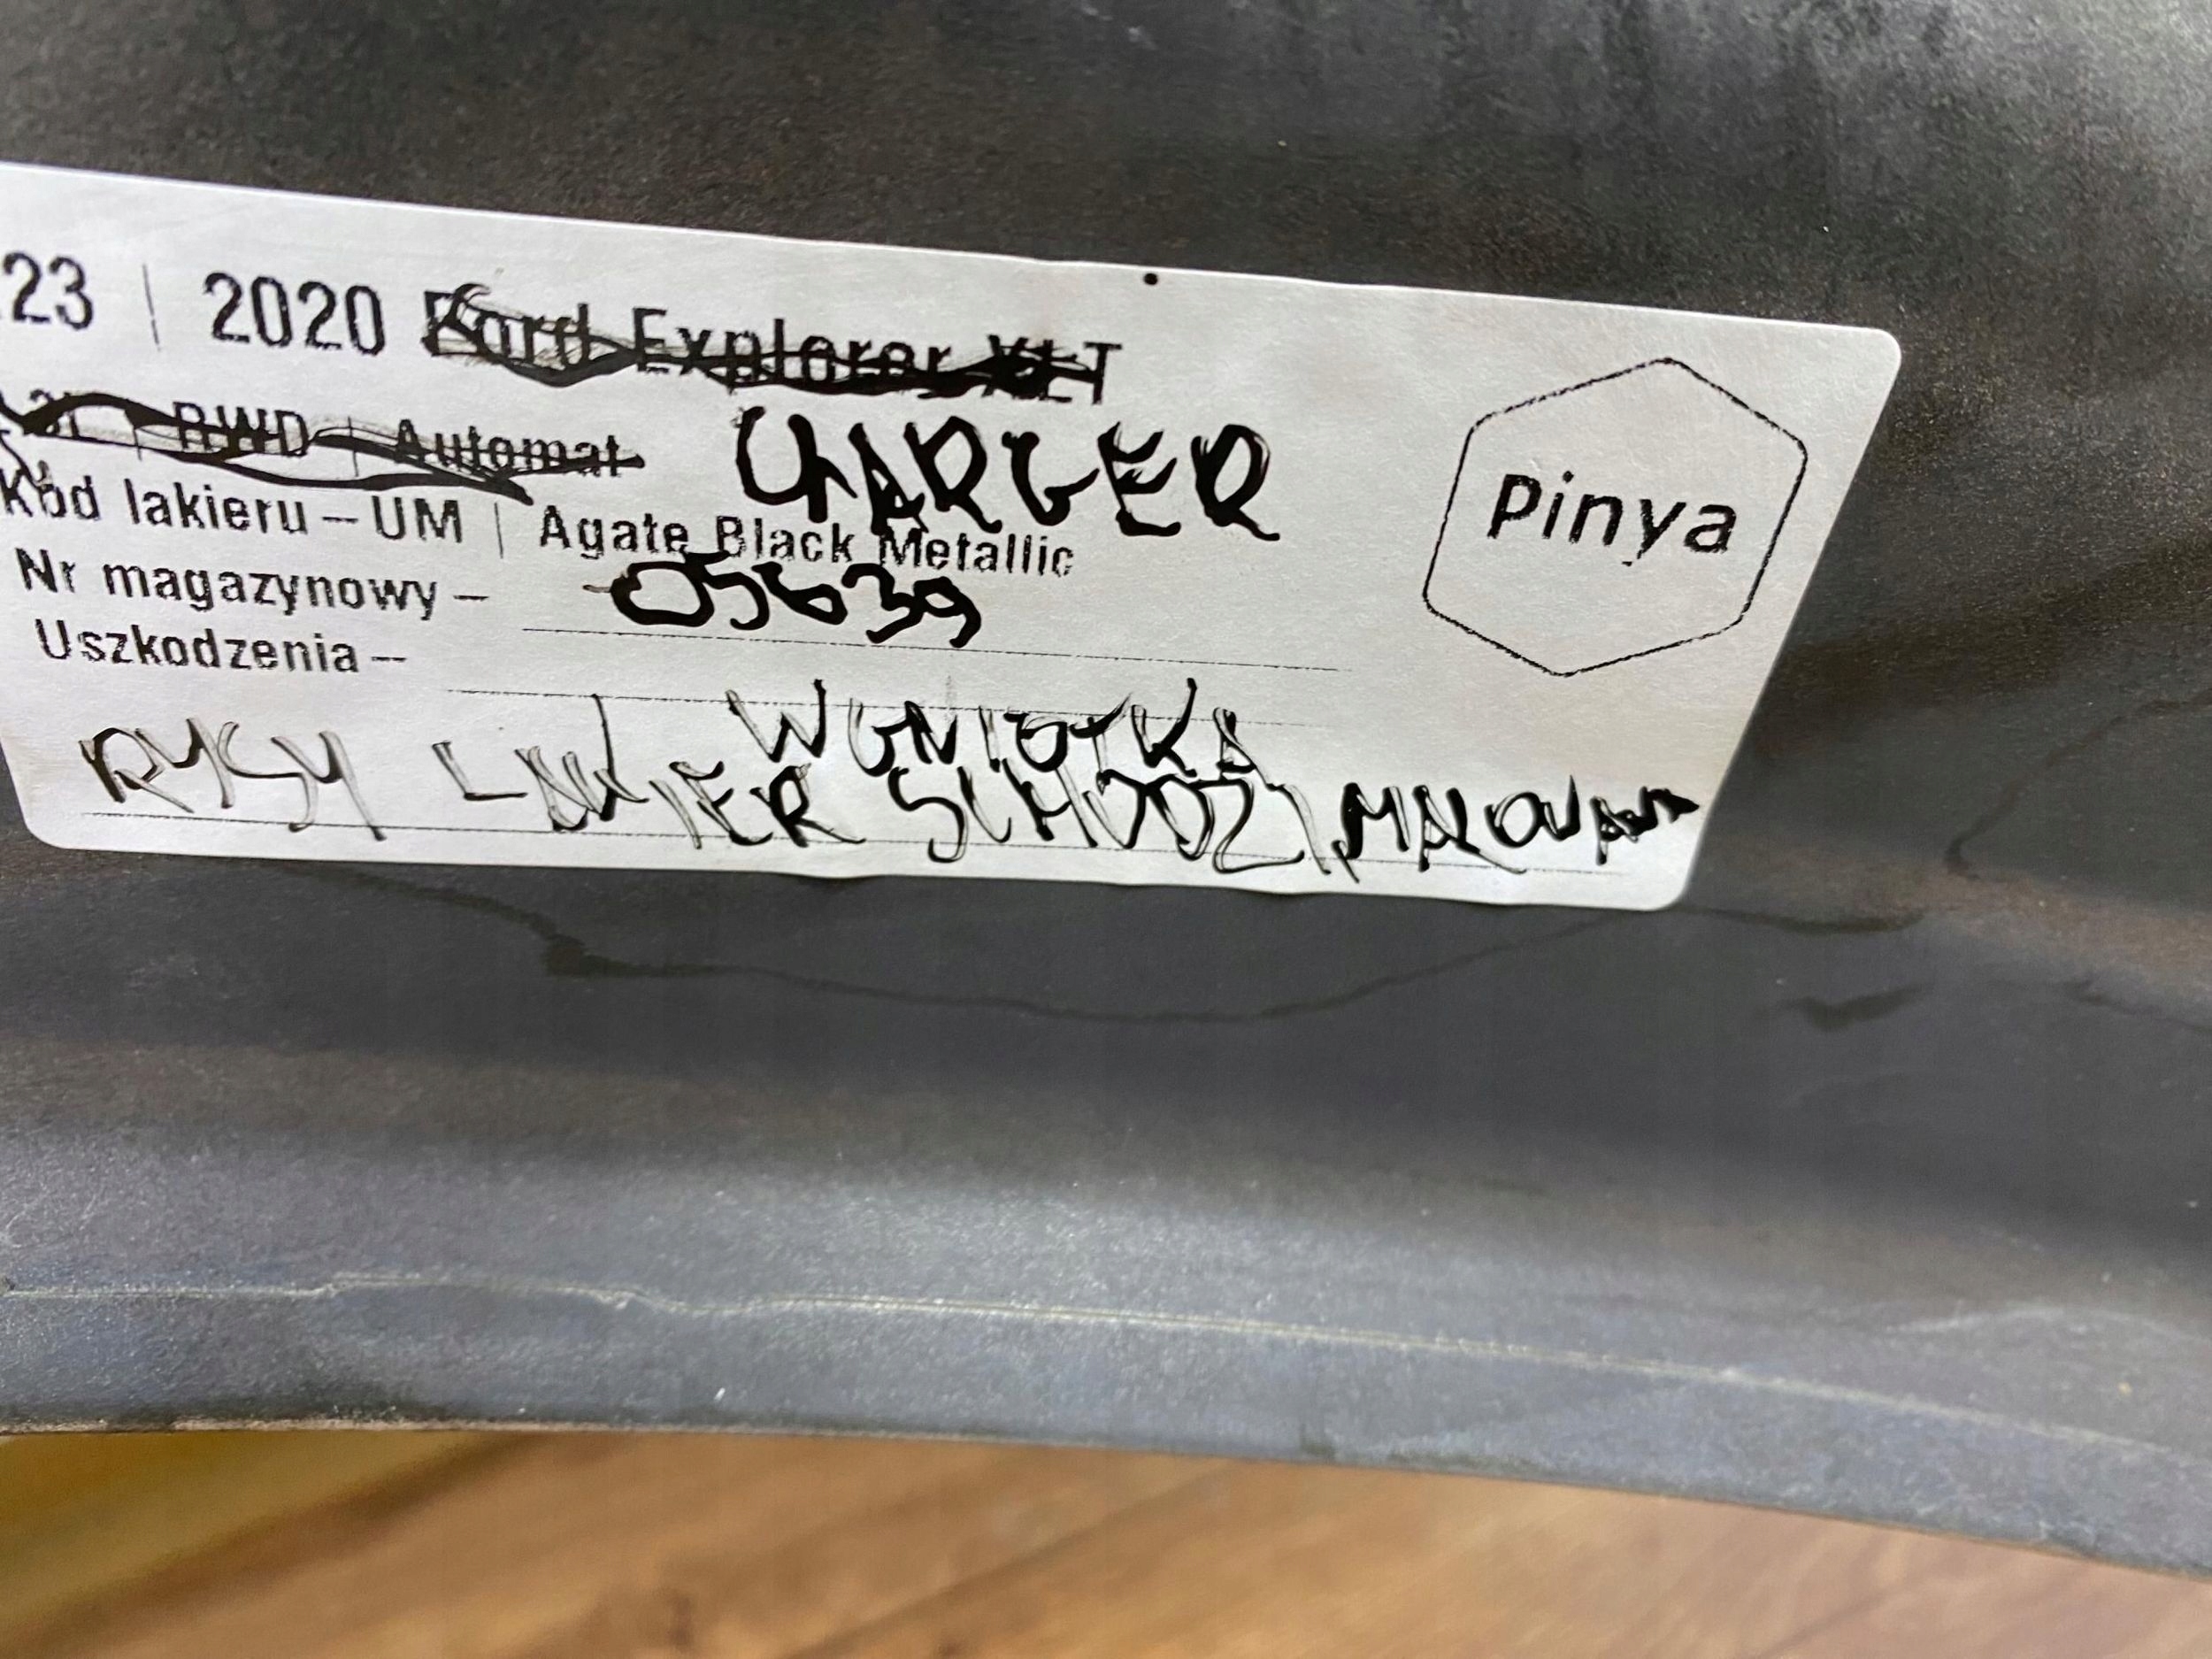 23 | 2020 Ford Explorer XLT
.3L | RWD | Automat
CHARGER
Kod lakieru – UM | Agate Black Metallic
Nr magazynowy – 05639
Uszkodzenia –
WGNIOTKA
RYSY LAKIER SCHODZI, MALOWANY
Pinya